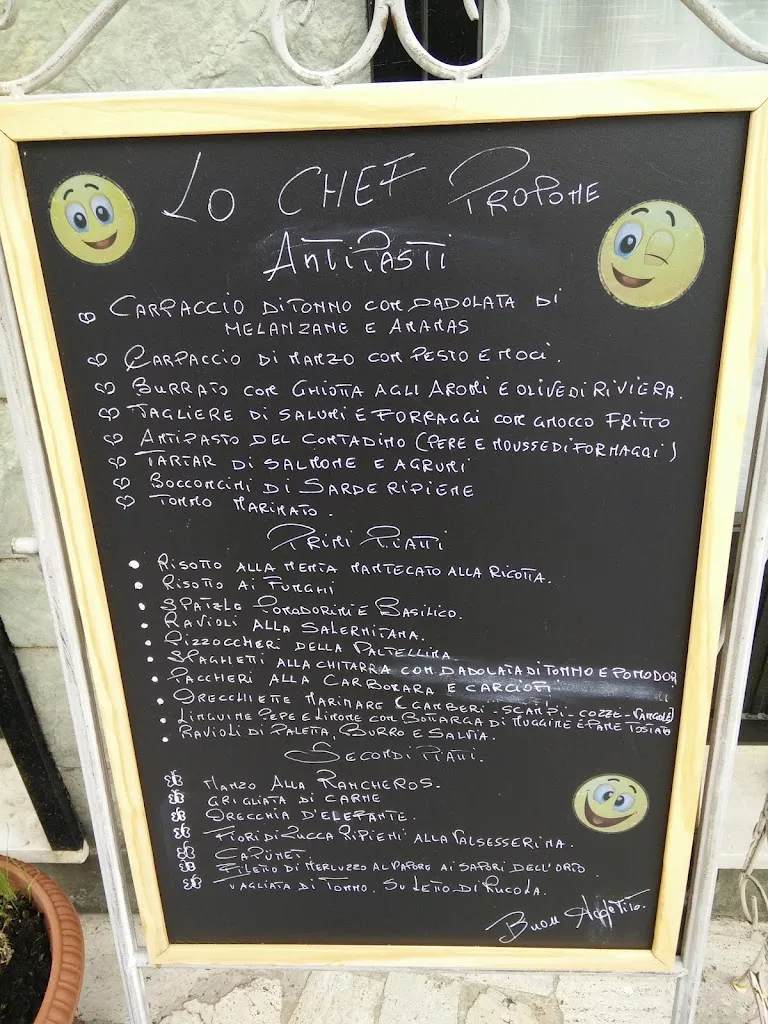 Lo CHEF PROPONE
ANTIPASTI
CARPACCIO DI TONNO CON DADOLATA DI
MELANZANE E ANANAS
CARPACCIO DI MANZO CON PESTO E NOCI.
BURRATO CON GHIOTTA AGLI AROMI E OLIVE DI RIVIERA.
TAGLIERE DI SALUMI E FORMAGGI CON GNOCCO FRITTO
ANTIPASTO DEL CONTADINO (PERE E MOUSSE DI FORMAGGI)
TARTAR DI SALMONE E AGRUMI
BOCCONCINI DI SARDE RIPIENE
TONNO MARINATO.
PRIMI PIATTI
RISOTTO ALLA MENTA MANTECATO ALLA RICOTTA.
RISOTTO AI FUNGHI
SPATZLE POMODORINI E BASILICO.
RAVIOLI ALLA SALERNITANA.
PIZZOCCHERI DELLA VALTELLINA.
SPAGHETTI ALLA CHITARRA CON DADOLATA DI TONNO E POMODOR
PACCHERI ALLA CARBONARA E CARCIOFI
ORECCHIETTE MARINARE (GAMBERI - SCAMPI - COZZE - VONGOLE)
LINGUINE PEPE E LIMONE CON BOTTARGA DI MUGGINE E PANE TOSTATO
RAVIOLI DI PALETTA, BURRO E SALVIA.
SECONDI PIATTI.
MANZO ALLA RANCHEROS.
GRIGLIATA DI CARNE
ORECCHIA D'ELEFANTE.
FIORI DI ZUCCA RIPIENI ALLA VALSESSERINA.
CAPUNET.
FILETTO DI MERLUZZO AL VAPORE AI SAPORI DELL'ORTO
TAGLIATA DI TONNO. SU LETTO DI RUCOLA.
BUON APPETITO.